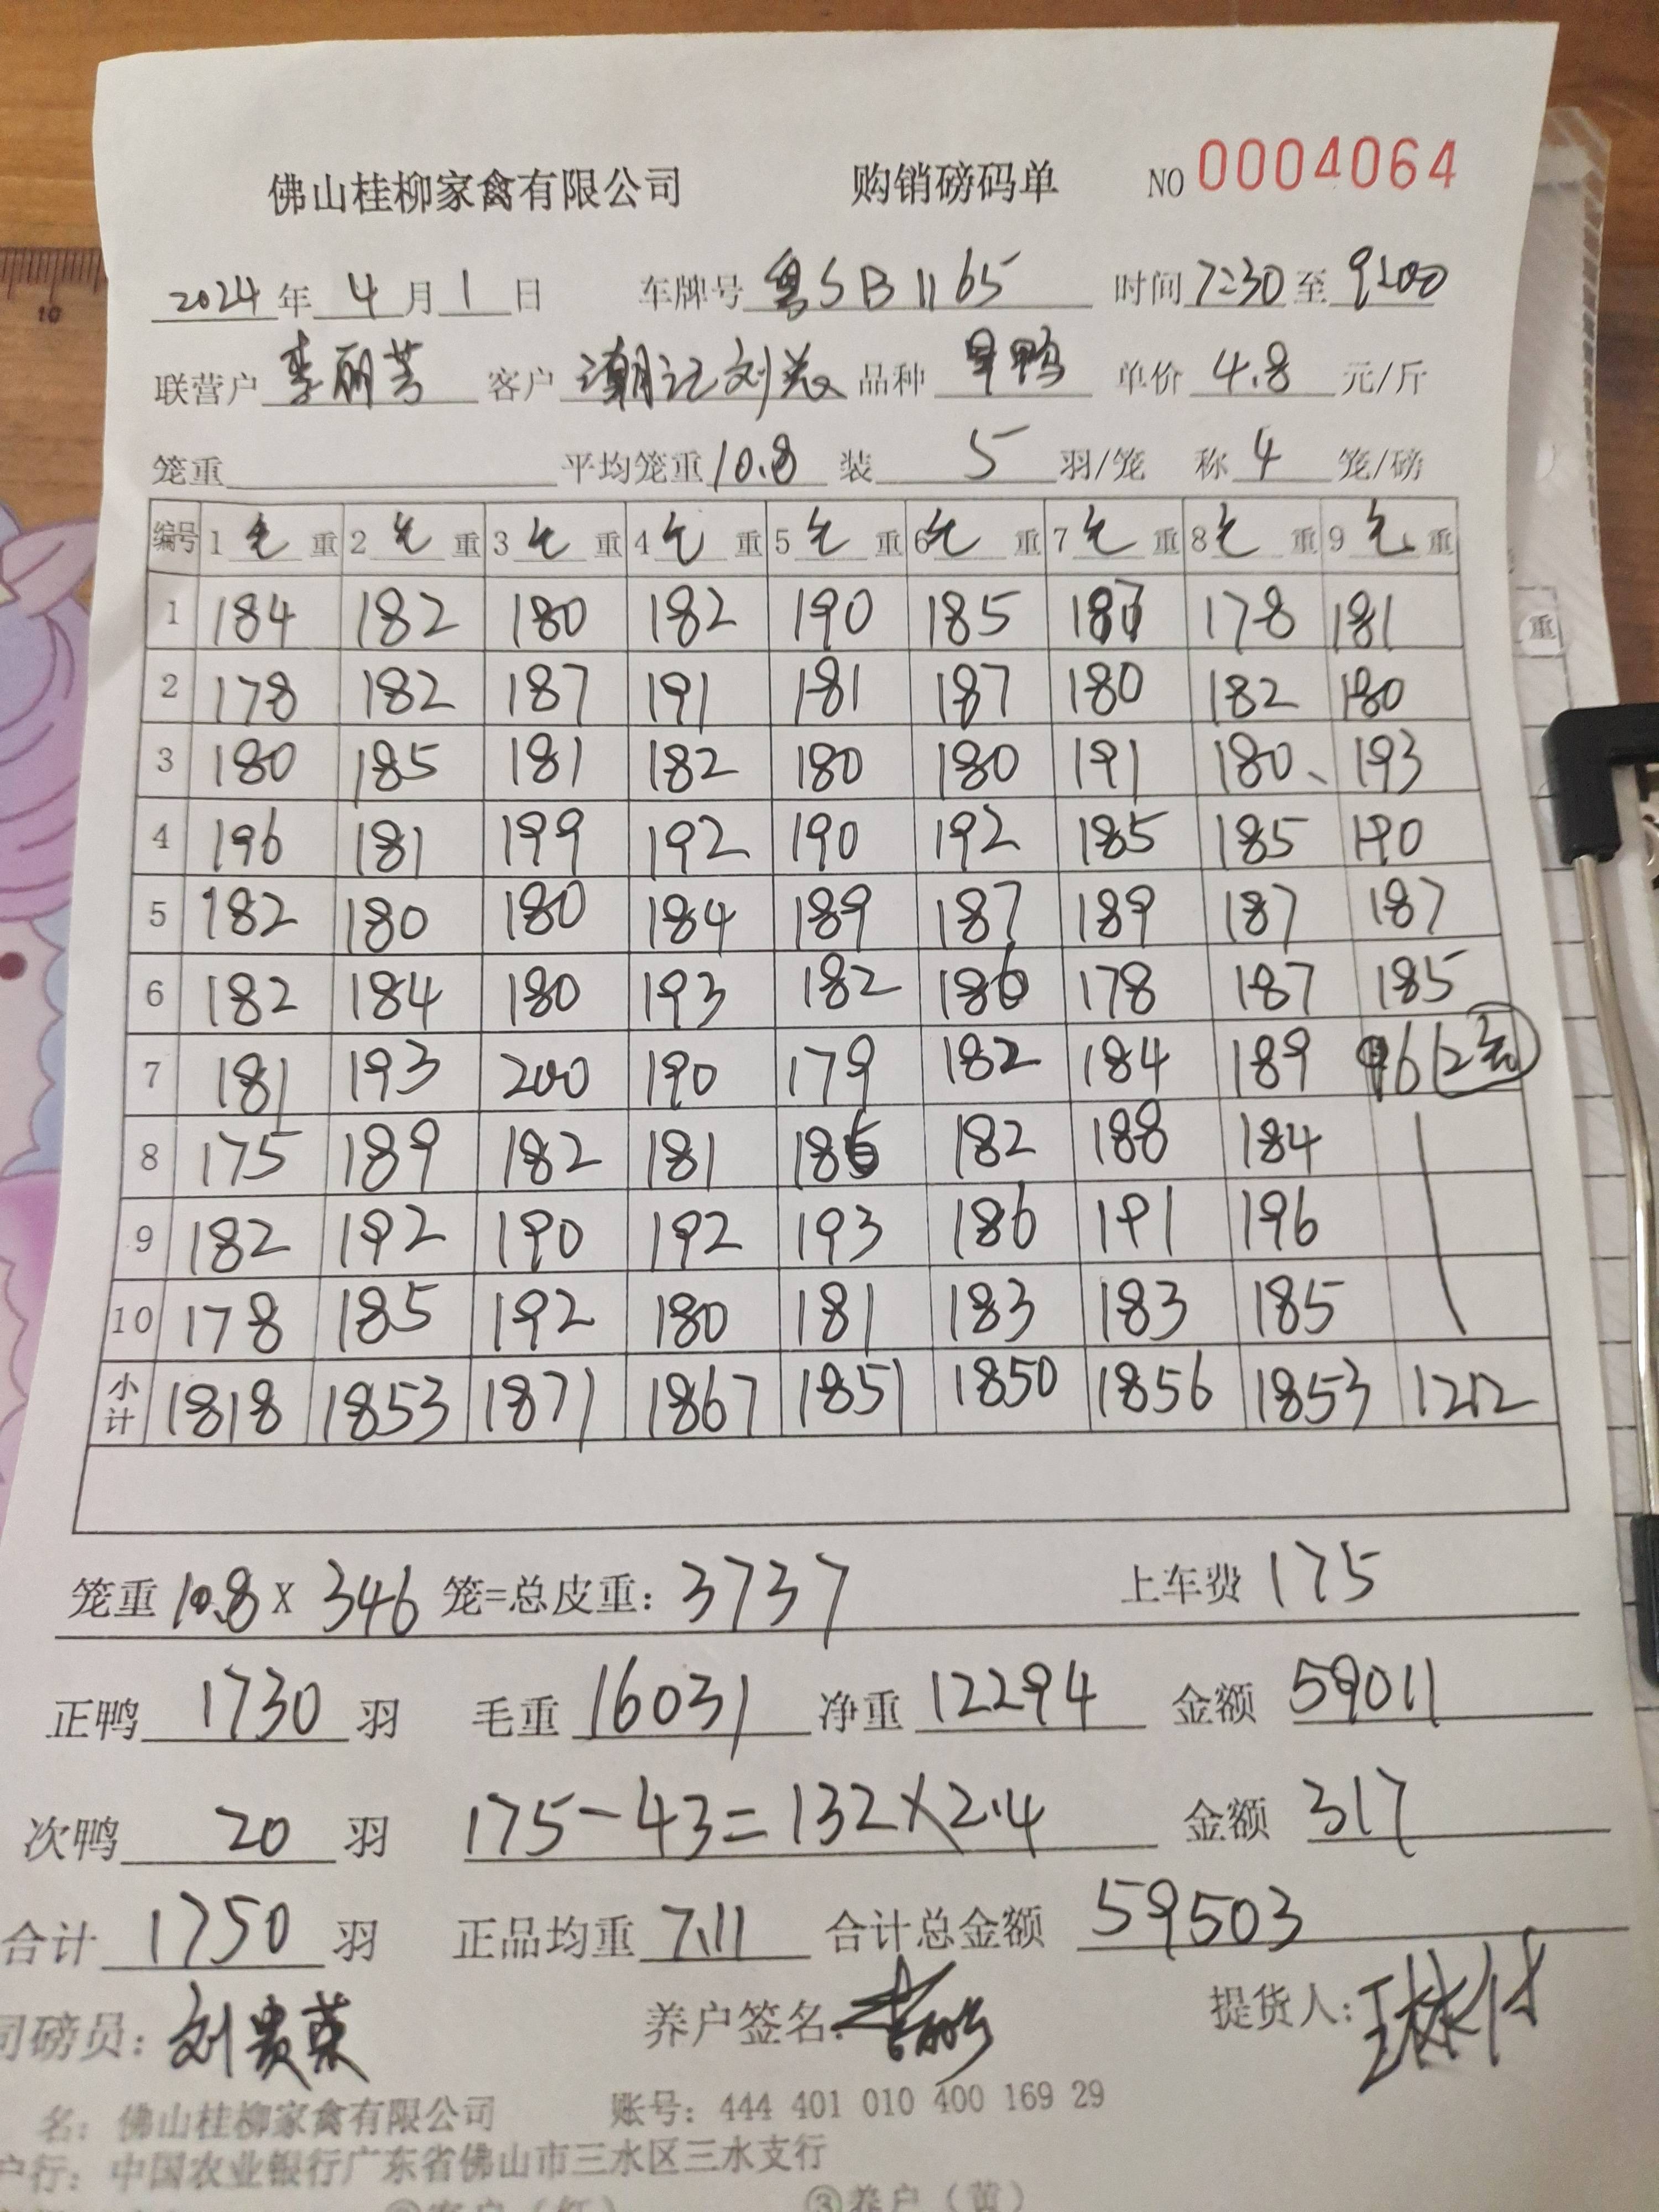 佛山桂柳家禽有限公司 购销磅码单 NO 0004064
2024 年 4 月 1 日 车牌号 粤SB1165 时间 7:30 至 9:00
联营户 李丽芳 客户 潮记刘 品种 旱鸭 单价 4.8 元/斤
笼重 平均笼重 10.8 装 5 羽/笼 称 4 笼/磅
编号 1 毛 重 2 毛 重 3 毛 重 4 毛 重 5 毛 重 6 毛 重 7 毛 重 8 毛 重 9 毛 重
1 184 182 180 182 190 185 187 178 181
2 178 182 187 191 181 187 180 182 180
3 180 185 181 182 180 180 191 180、 193
4 196 181 199 192 190 192 185 185 190
5 182 180 180 184 189 187 189 187 187
6 182 184 180 193 182 186 178 187 185
7 181 193 200 190 179 182 184 189 96 (2笼)
8 175 189 182 181 186 182 188 184
9 182 192 190 192 193 186 191 196
10 178 185 192 180 181 183 183 185
小计 1818 1853 1871 1867 1851 1850 1856 1853 1212
笼重 10.8 X 346 笼=总皮重: 3737 上车费 175
正鸭 1730 羽 毛重 16031 净重 12294 金额 59011
次鸭 20 羽 175-43=132×2.4 金额 317
合计 1750 羽 正品均重 7.11 合计总金额 59503
司磅员: 刘贵荣 养户签名: 提货人:
名: 佛山桂柳家禽有限公司 账号: 444 401 010 400 169 29
户行: 中国农业银行广东省佛山市三水区三水支行
②客户(红) ③养户(黄)